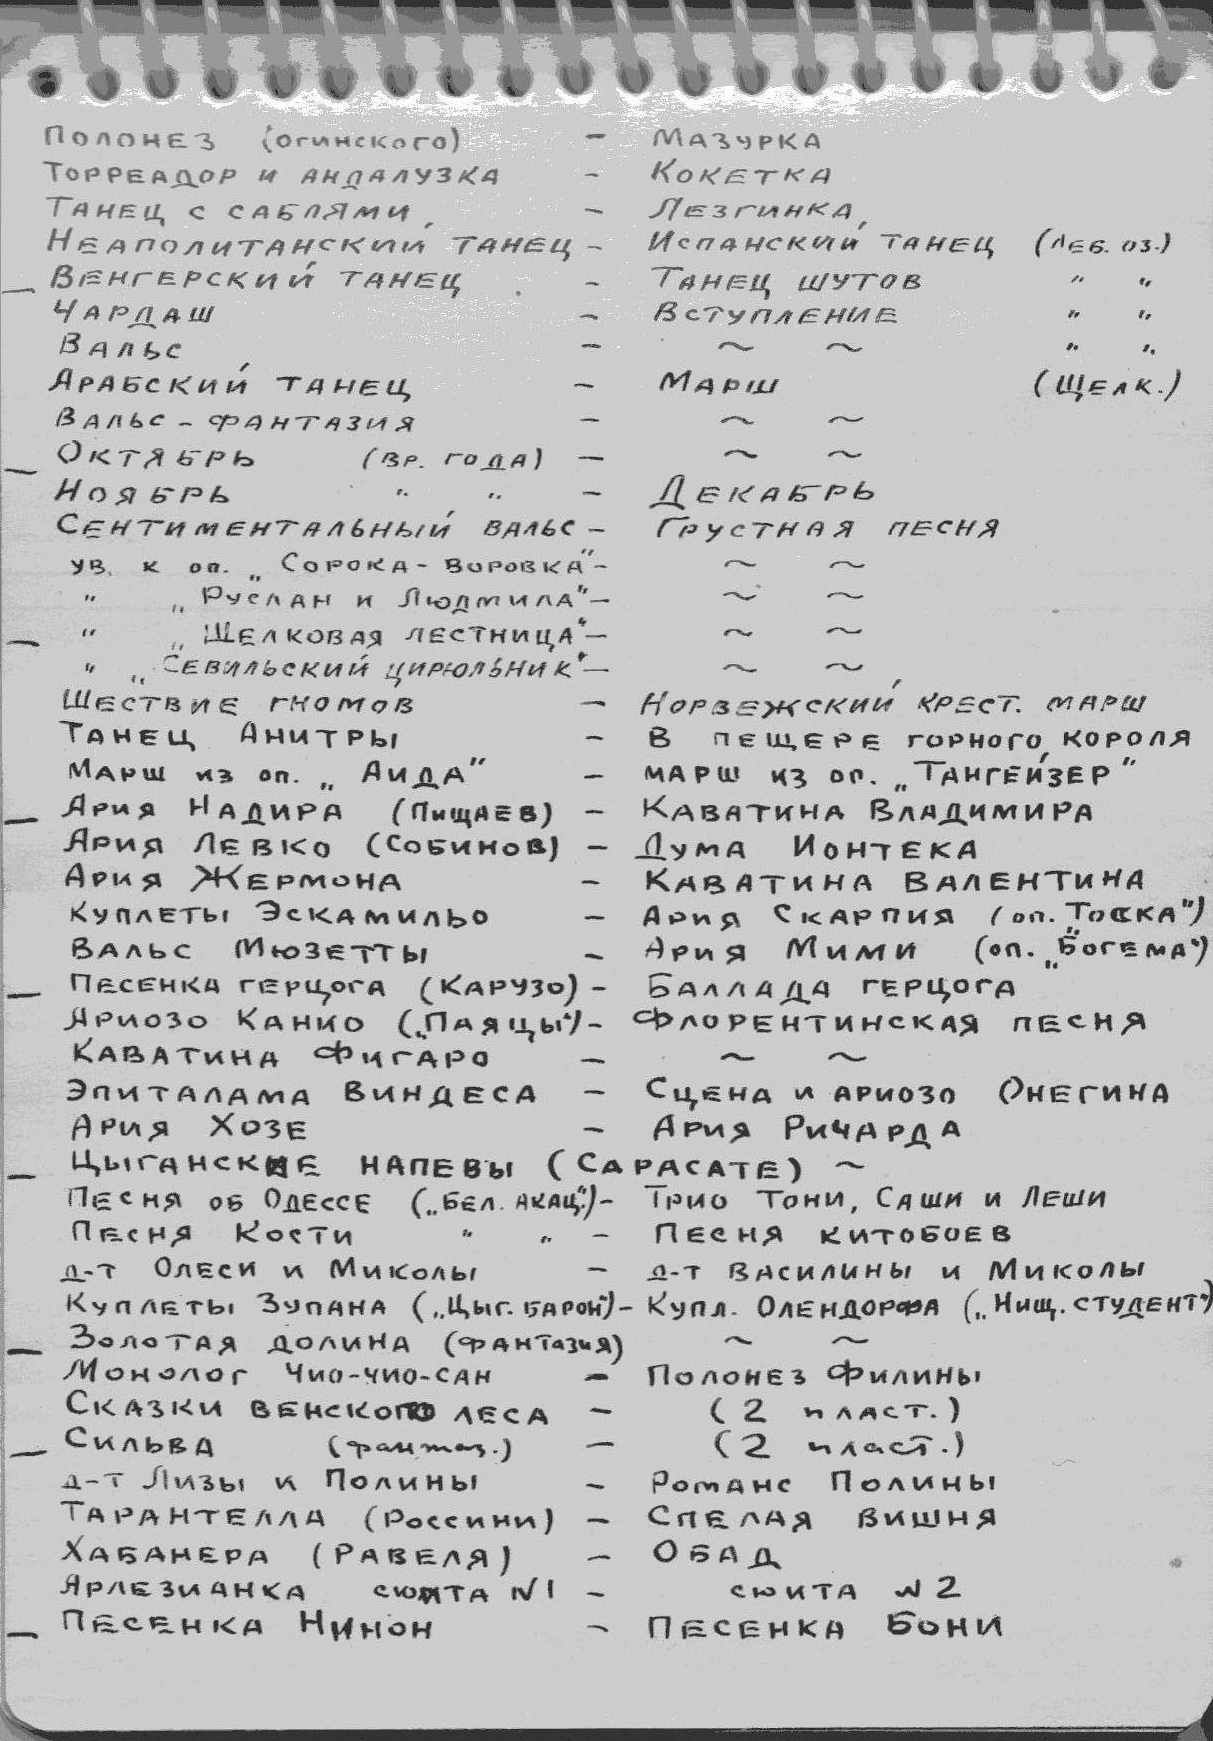 Полонез (Огинского) - Мазурка
Торреадор и андалузка - Кокетка
Танец с саблями, - Лезгинка,
Неаполитанский танец - Испанский танец (Леб. оз.)
— Венгерский танец - Танец шутов " "
Чардаш - Вступление " "
Вальс - ~ ~ " "
Арабский танец - Марш (Щелк.)
Вальс-фантазия - ~ ~
— Октябрь (Вр. года) - ~ ~
Ноябрь " " - Декабрь
Сентиментальный вальс - Грустная песня
ув. к оп. „Сорока-воровка" - ~ ~
" „Руслан и Людмила" - ~ ~
— " „Шелковая лестница" - ~ ~
" „Севильский цирюльник" - ~ ~
Шествие гномов - Норвежский крест. марш
Танец Анитры - В пещере горного короля
Марш из оп. „Аида" - марш из оп. „Тангейзер"
— Ария Надира (Пищаев) - Каватина Владимира
Ария Левко (Собинов) - Дума Ионтека
Ария Жермона - Каватина Валентина
Куплеты Эскамильо - Ария Скарпия (оп. „Тоска")
Вальс Мюзетты - Ария Мими (оп. „Богема")
— Песенка герцога (Карузо) - Баллада герцога
Ариозо Канио („Паяцы") - Флорентинская песня
Каватина Фигаро - ~ ~
Эпиталама Виндеса - Сцена и ариозо Онегина
Ария Хозе - Ария Ричарда
— Цыганские напевы (Сарасате) ~
Песня об Одессе („Бел. акац.") - Трио Тони, Саши и Леши
Песня Кости " " - Песня китобоев
д-т Олеси и Миколы - д-т Василины и Миколы
Куплеты Зупана („Цыг. барон") - Купл. Олендорфа („Нищ. студент")
— Золотая долина (фантазия) ~ ~
Монолог Чио-чио-сан - Полонез Филины
Сказки венского леса - (2 пласт.)
— Сильва (фантаз.) - (2 пласт.)
д-т Лизы и Полины - Романс Полины
Тарантелла (Россини) - Спелая вишня
Хабанера (Равеля) - Обад
Арлезианка сюита N1 - сюита N2
— Песенка Нинон - Песенка Бони